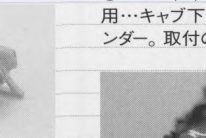 用…キャブ下
ンダー。取付の